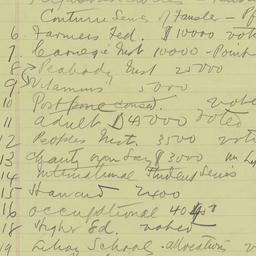 Continue Series of Panels - Of
6. Farmers Fed. $10000 vote
7. Carnegie Inst 10000 - Point
8 Peabody Inst 25000
9 Vitamins 5000
10 Postpone consd. vote
11 adult D 4000 voted
12 Peoples Inst. 3500 vote
13 Charity orgn Soy $3000
14 International Student Series
15 Harvard 2400
16 occupational 40
18 Higher Ed. voted
19 School - allocations v